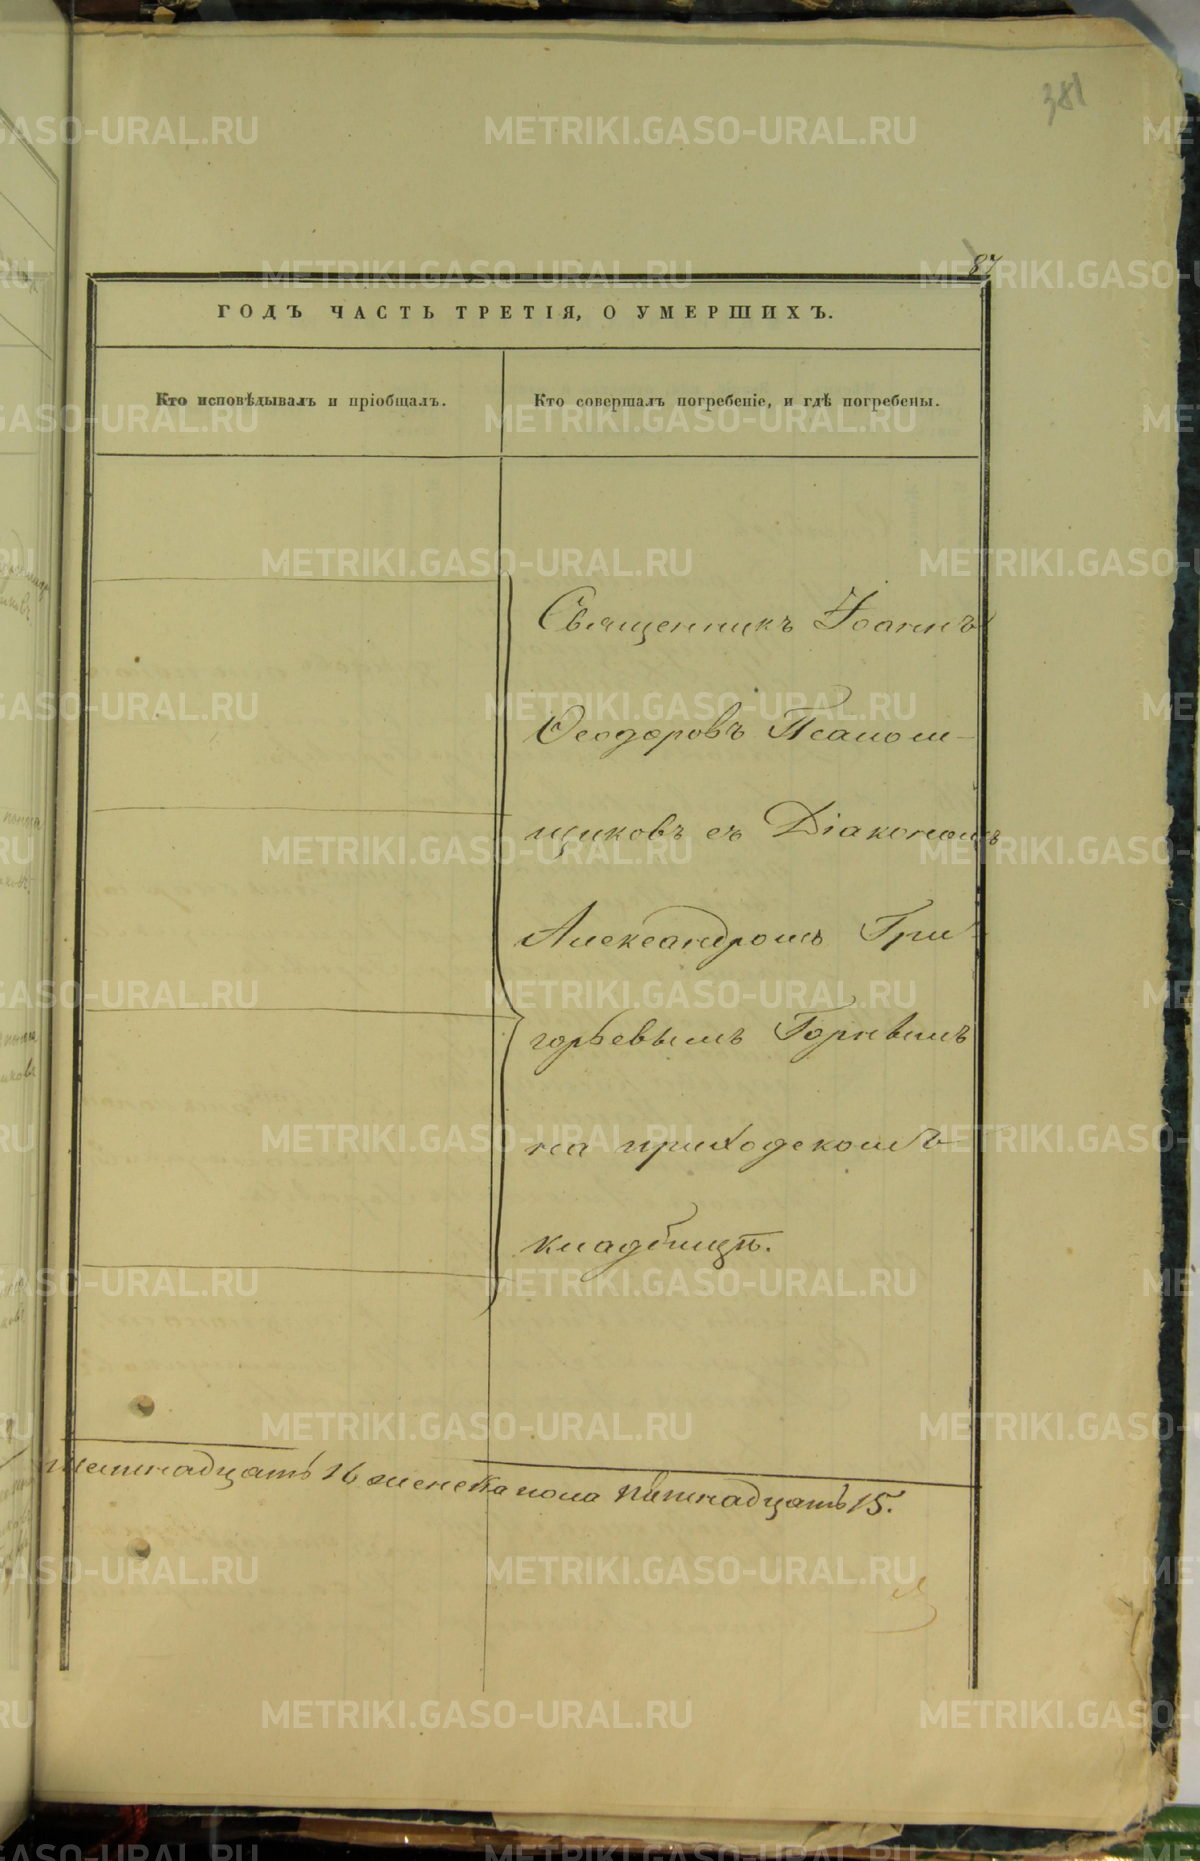 381
87
ГОДЪ ЧАСТЬ ТРЕТІЯ, О УМЕРШИХЪ.
Кто исповѣдывалъ и пріобщалъ.
Кто совершалъ погребеніе, и гдѣ погребены.
Священникъ Іоаннъ
Ѳеодоровъ Псалом-
щиковъ съ Діакономъ
Александромъ Гри-
горьевымъ Горнымъ
на приходскомъ
кладбищѣ.
шестнадцать 16 женска пола пятнадцать 15.
METRIKI.GASO-URAL.RU